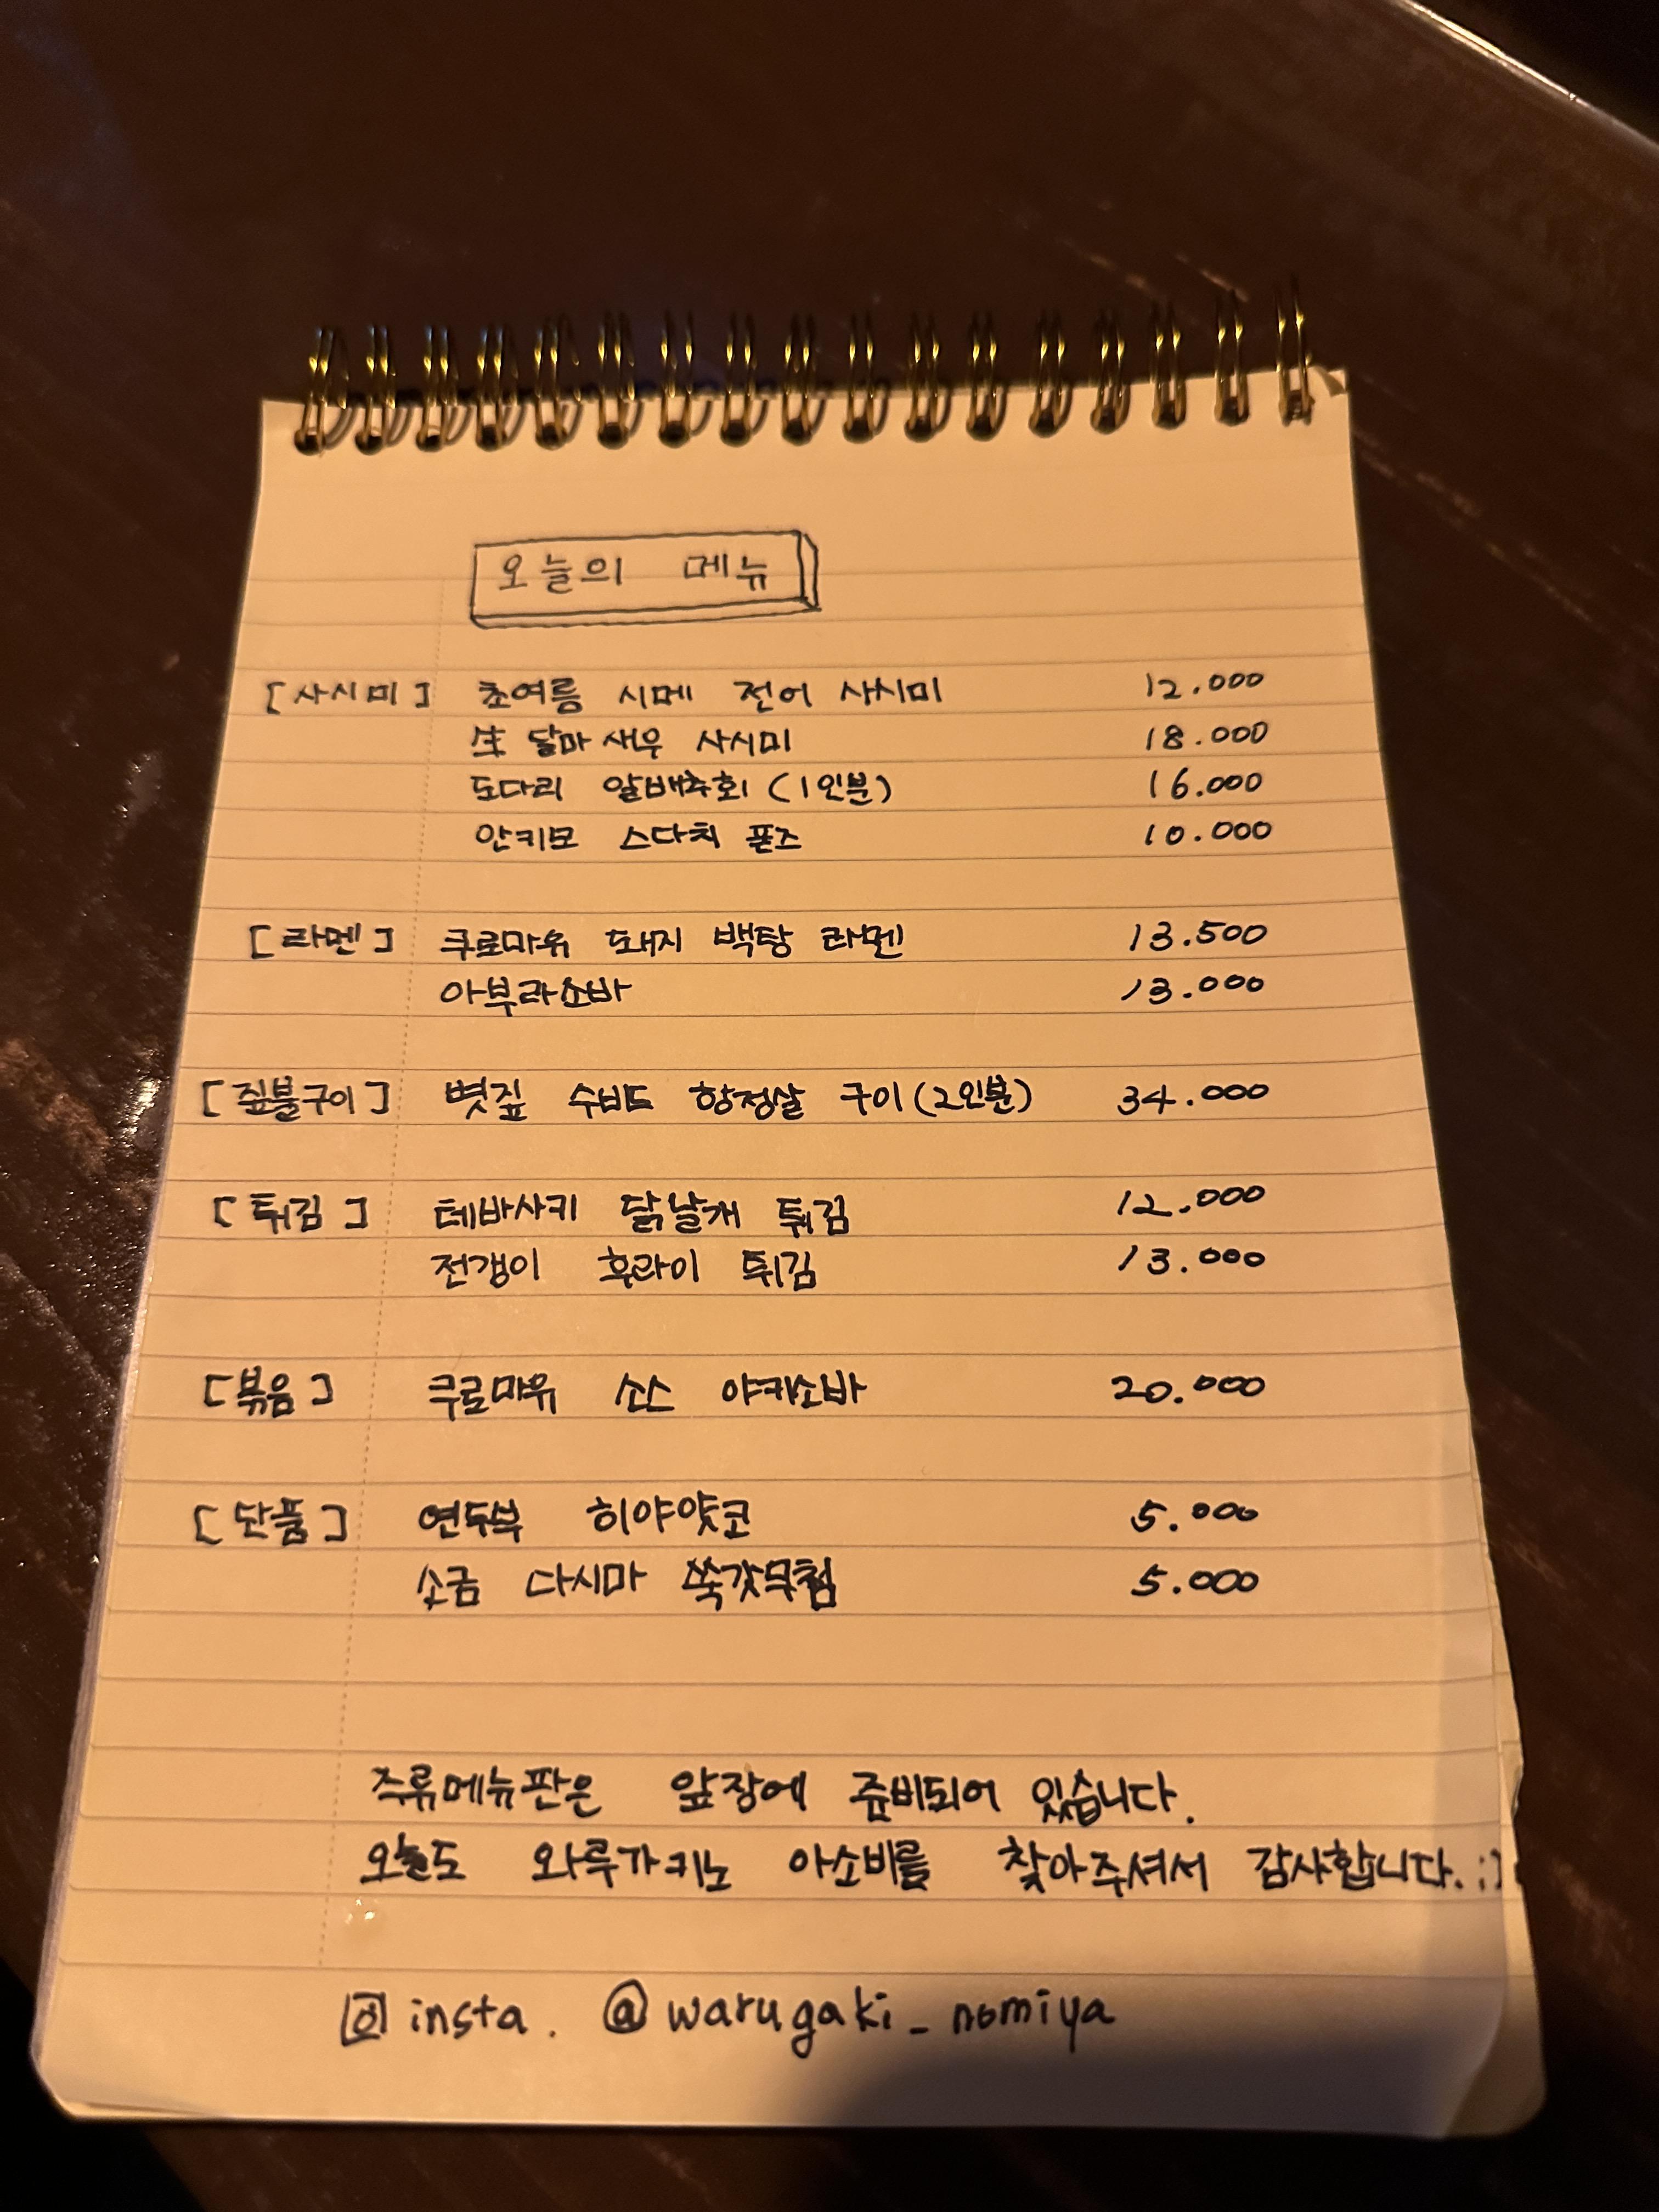 오늘의 메뉴
[사시미] 초여름 시메 전어 사시미 12.000
生 달마새우 사시미 18.000
도다리 알배추회 (1인분) 16.000
안키모 스다치 폰즈 10.000
[라멘] 쿠로마유 돼지 백탕 라멘 13.500
아부라소바 13.000
[짚불구이] 볏짚 수비드 항정살 구이(2인분) 34.000
[튀김] 테바사키 닭날개 튀김 12.000
전갱이 후라이 튀김 13.000
[볶음] 쿠로마유 소스 야키소바 20.000
[단품] 연두부 히야얏코 5.000
소금 다시마 쑥갓무침 5.000
주류메뉴판은 앞장에 준비되어 있습니다.
오늘도 와루가키노 아소비를 찾아주셔서 감사합니다. :)
insta. @warugaki_nomiya